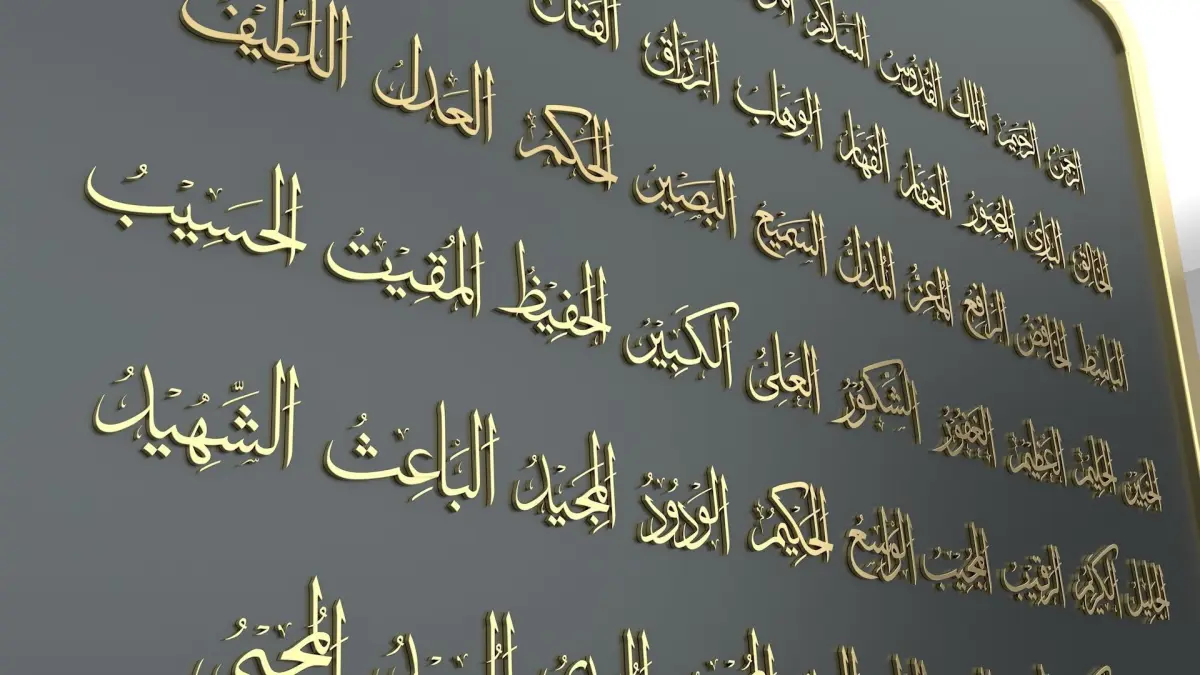 الرحمن الرحيم الملك القدوس السلام
الخالق البارئ المصور الغفار القهار الوهاب الرزاق
الباسط الخافض الرافع المعز المذل السميع البصير الحكم العدل اللطيف
الخبير الحليم العظيم الغفور الشكور العلي الكبير الحفيظ المقيت الحسيب
الجليل الكريم الرقيب المجيب الواسع الحكيم الودود المجيد الباعث الشهيد
المحيي